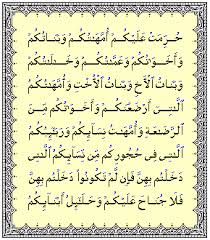 حُرِّمَتْ عَلَيْكُمْ أُمَّهَٰتُكُمْ وَبَنَاتُكُمْ
وَأَخَوَٰتُكُمْ وَعَمَّٰتُكُمْ وَخَٰلَٰتُكُمْ
وَبَنَاتُ ٱلْأَخِ وَبَنَاتُ ٱلْأُخْتِ وَأُمَّهَٰتُكُمُ
ٱلَّٰتِىٓ أَرْضَعْنَكُمْ وَأَخَوَٰتُكُم مِّنَ
ٱلرَّضَٰعَةِ وَأُمَّهَٰتُ نِسَآئِكُمْ وَرَبَٰٓئِبُكُمُ
ٱلَّٰتِى فِى حُجُورِكُم مِّن نِّسَآئِكُمُ ٱلَّٰتِى
دَخَلْتُم بِهِنَّ فَإِن لَّمْ تَكُونُوا۟ دَخَلْتُم بِهِنَّ
فَلَا جُنَاحَ عَلَيْكُمْ وَحَلَٰٓئِلُ أَبْنَآئِكُمُ